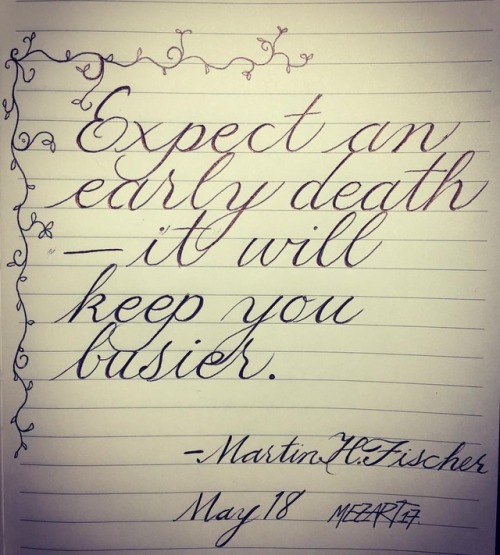 Expect an
early death
— it will
keep you
busier.
- Martin H. Fischer
May 18 MEZART17